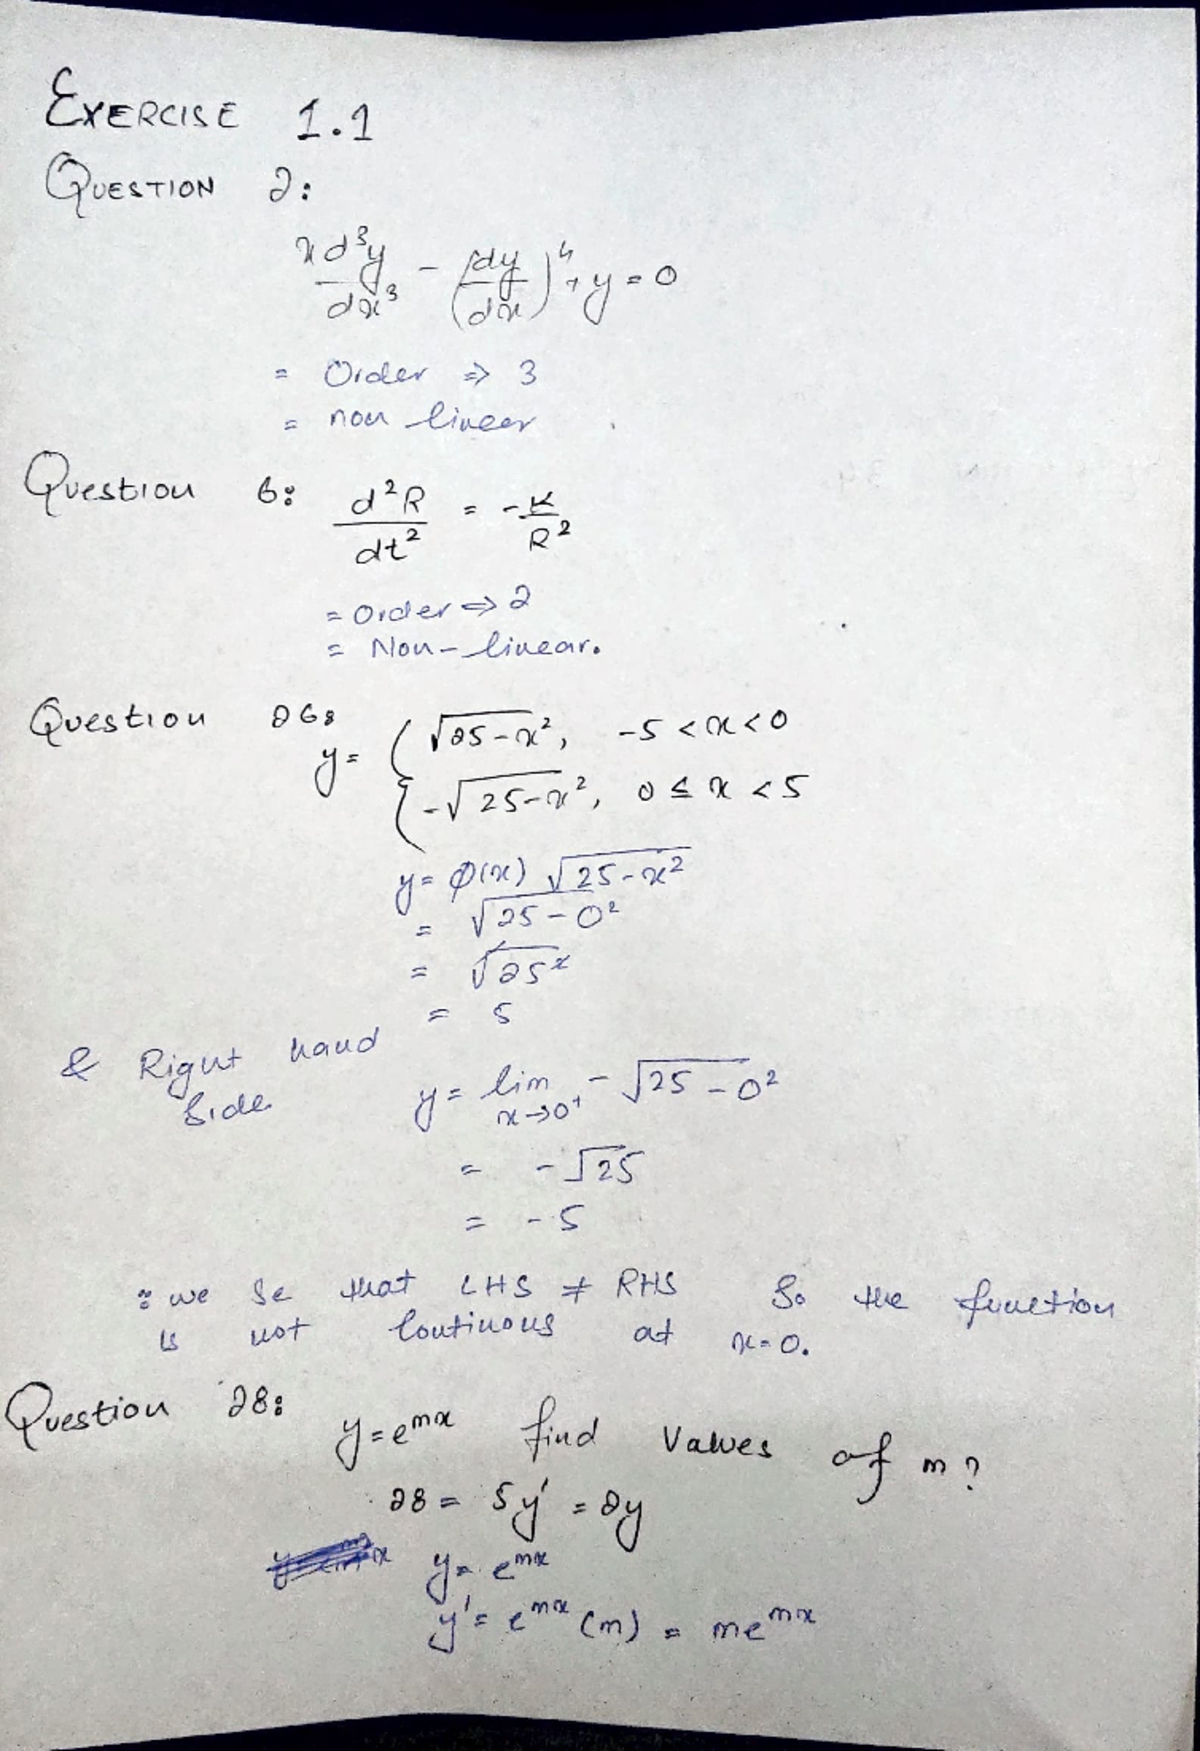 EXERCISE 1.1
QUESTION 2:
x d³y/dx³ - (dy/dx)⁴ + y = 0
= Order ⇒ 3
= non linear
Question 6: d²R/dt² = -K/R²
= Order ⇒ 2
= Non-linear.
Question 26:
y = { √25-x², -5 < x < 0
-√25-x², 0 ≤ x < 5
y = φ(x) √25-x²
= √25-0²
= √25
= 5
& Right hand Side y = lim x→0⁺ -√25-0²
= -√25
= -5
: we se that LHS ≠ RHS So the function
is not Continous at x=0.
Question 28: y = e^mx find Values of m?
28 = 5y' = 2y
y = e^mx
y' = e^mx (m) = me^mx